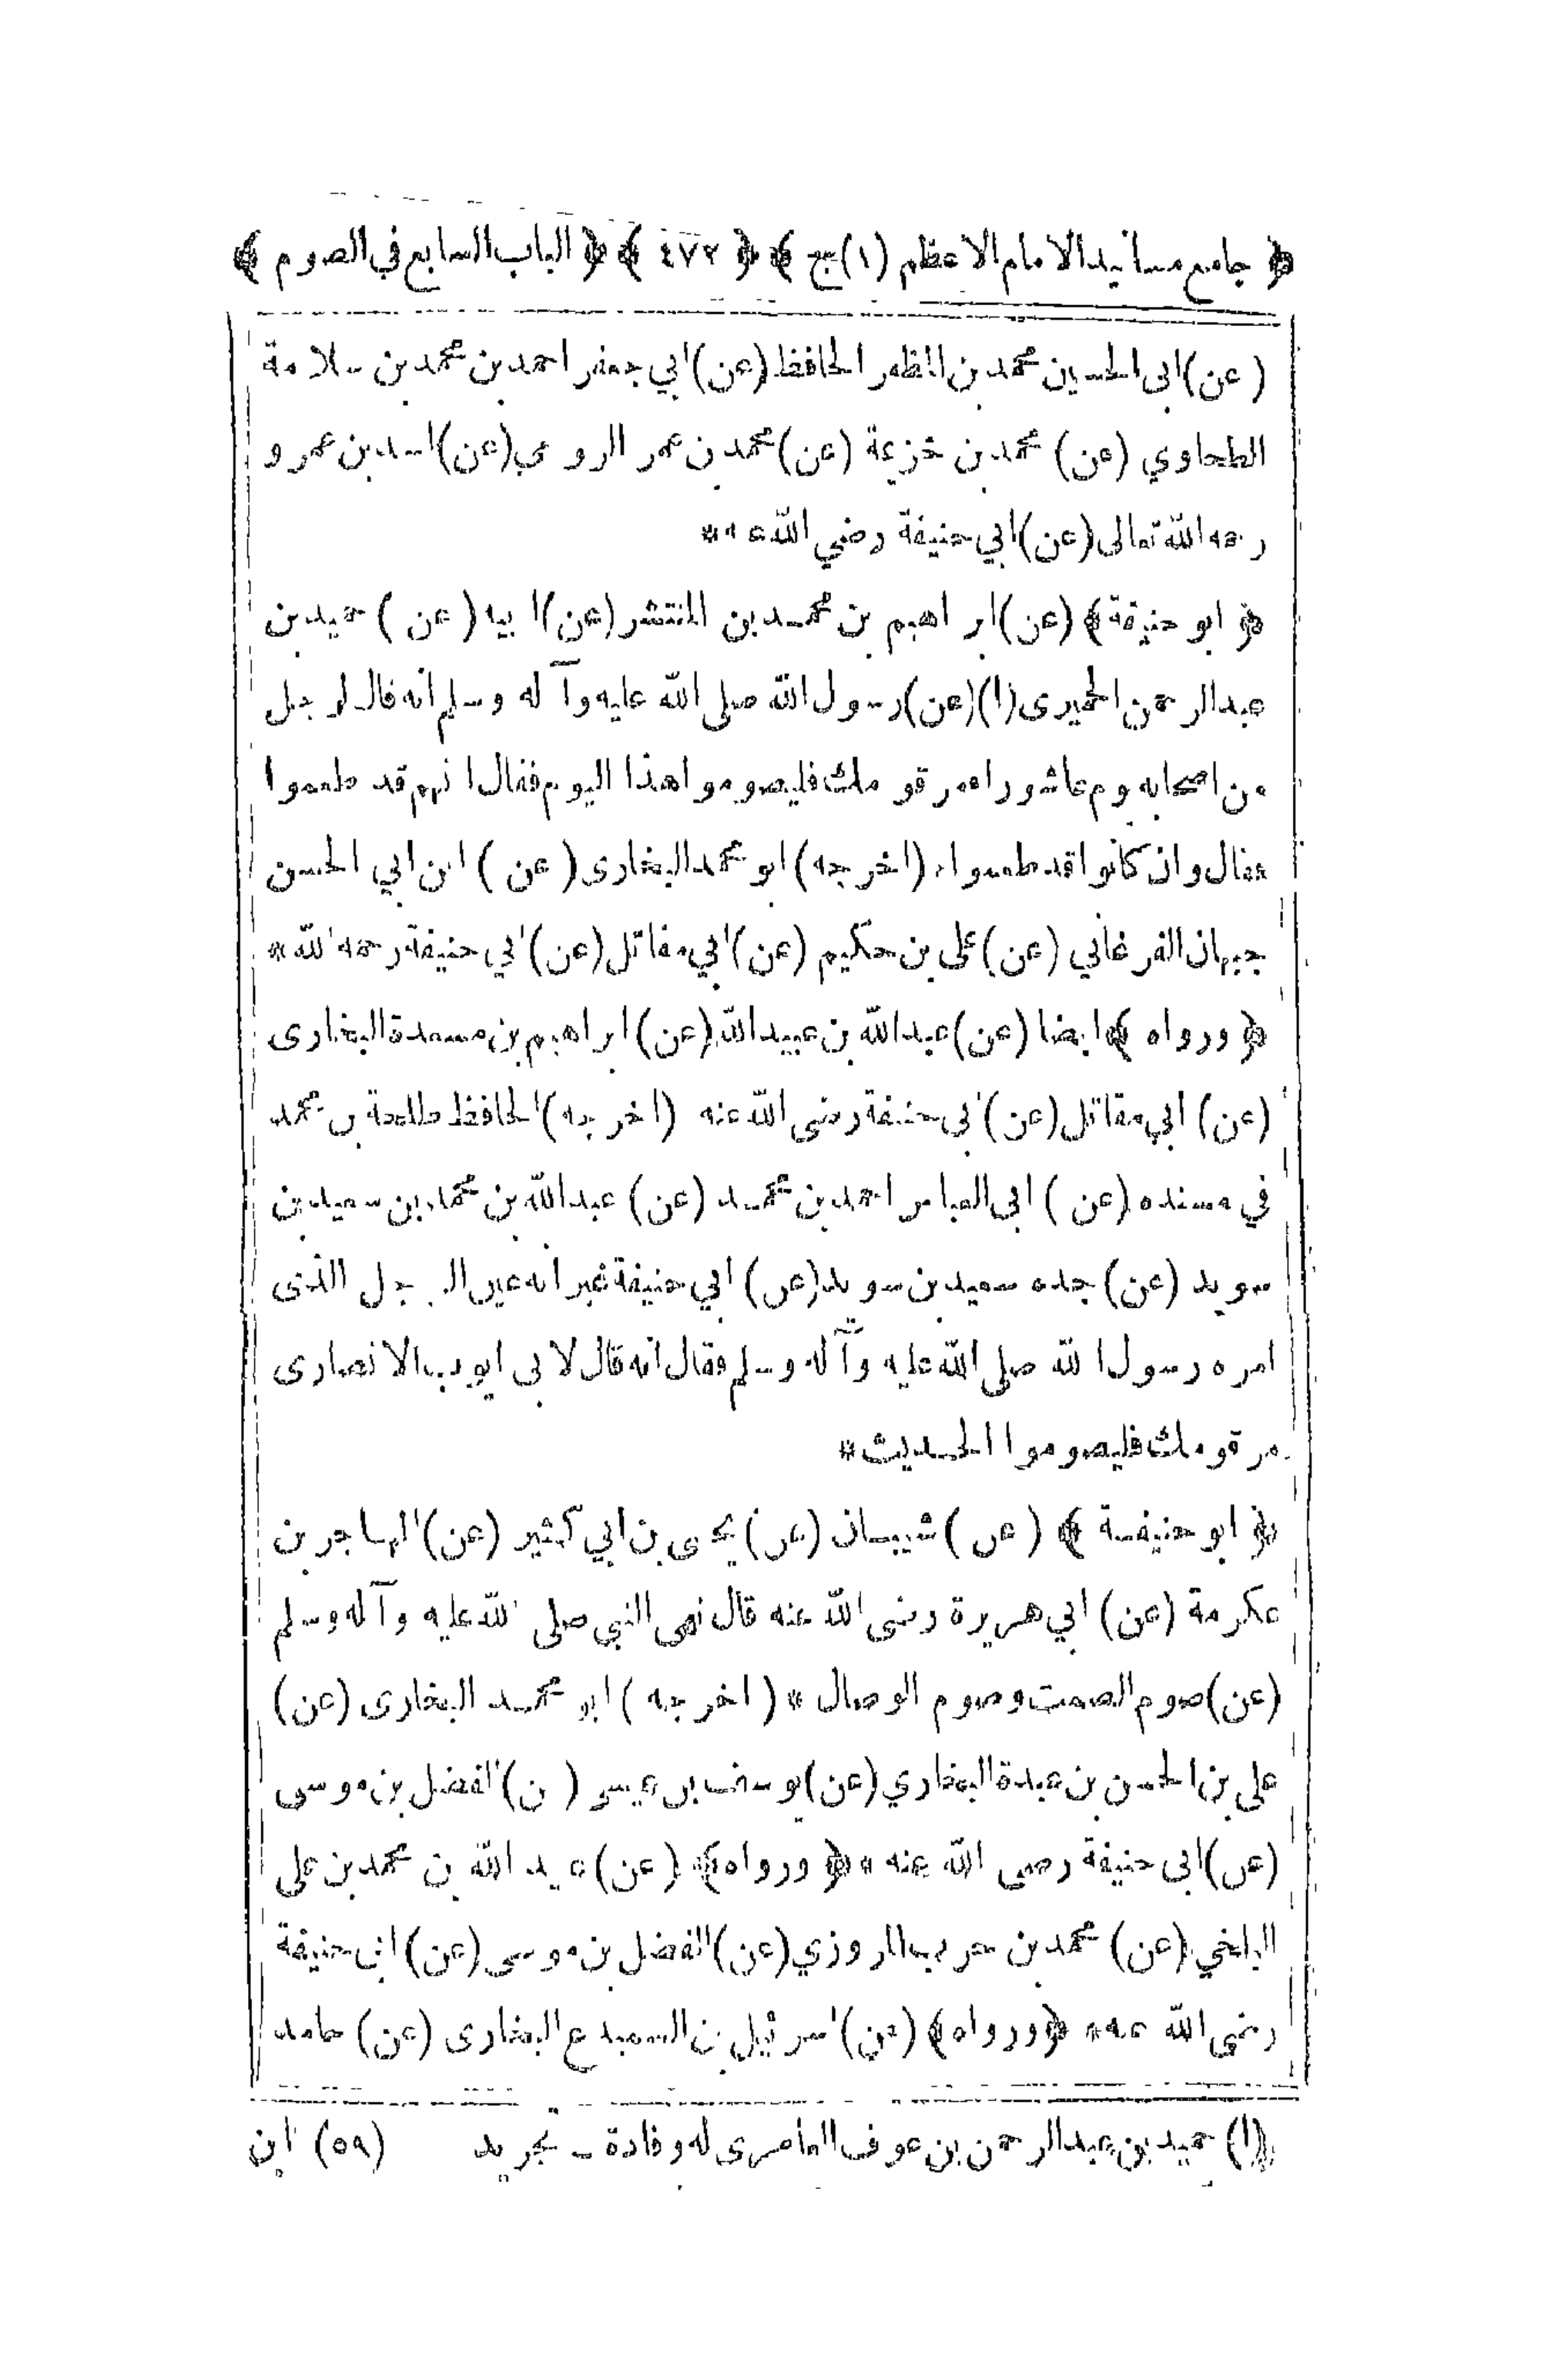 ﴿ جامع مسانيد الامام الاعظم (١) ج ﴾ ﴿ ٤٧٢ ﴾ ﴿ الباب السابع في الصوم ﴾
(عن) ابى الحسين محمد بن المظفر الحافظ (عن) ابي جعفر احمد بن محمد بن سلامة
الطحاوي (عن) محمد بن خزيمة (عن) محمد بن عمر الرومي (عن) اسد بن عمرو
رحمه الله تعالى (عن) ابي حنيفة رضي الله عنه *
﴿ ابو حنيفة ﴾ (عن) ابراهيم بن محمد بن المنتشر (عن) ابيه (عن) حميد بن
عبد الرحمن الحميرى (١) (عن) رسول الله صلى الله عليه وآله وسلم انه قال لرجل
من اصحابه يوم عاشوراء مر قومك فليصوموا هذا اليوم فقال انهم قد طعموا
فقال وان كانوا قد طعموا * (اخرجه) ابو محمد البخارى (عن) ابن ابي الحسن
جيهان الفرغاني (عن) على بن حكيم (عن) ابي مقاتل (عن) ابي حنيفة رحمه الله *
﴿ ورواه ﴾ ايضا (عن) عبد الله بن عبيد الله (عن) ابراهيم بن مسعدة البخارى
(عن) ابي مقاتل (عن) ابى حنيفة رضى الله عنه (اخرجه) الحافظ طلحة بن محمد
في مسنده (عن) ابى العباس احمد بن محمد (عن) عبد الله بن محمد بن سعيد بن
سويد (عن) جده سعيد بن سويد (عن) ابي حنيفة غير انه عين الرجل الذى
امره رسول الله صلى الله عليه وآله وسلم فقال انه قال لابى ايوب الانصارى
مر قومك فليصوموا الحديث *
﴿ ابو حنيفة ﴾ (عن) شيبان (عن) يحيى بن ابي كثير (عن) المهاجر بن
عكرمة (عن) ابي هريرة رضى الله عنه قال نهى النبي صلى الله عليه وآله وسلم
(عن) صوم الصمت وصوم الوصال * (اخرجه) ابو محمد البخارى (عن)
على بن الحسن بن عبدة البخاري (عن) يوسف بن عيسى (عن) الفضل بن موسى
(عن) ابى حنيفة رضى الله عنه * ﴿ ورواه ﴾ (عن) عبد الله بن محمد بن على
البلخي (عن) محمد بن حرب المروزي (عن) الفضل بن موسى (عن) ابى حنيفة
رضى الله عنه * ﴿ ورواه ﴾ (عن) اسرائيل بن السميدع البخارى (عن) حامد
(١) حميد بن عبد الرحمن بن عوف العامرى له وفادة ـ تجريد (٥٩) ابن